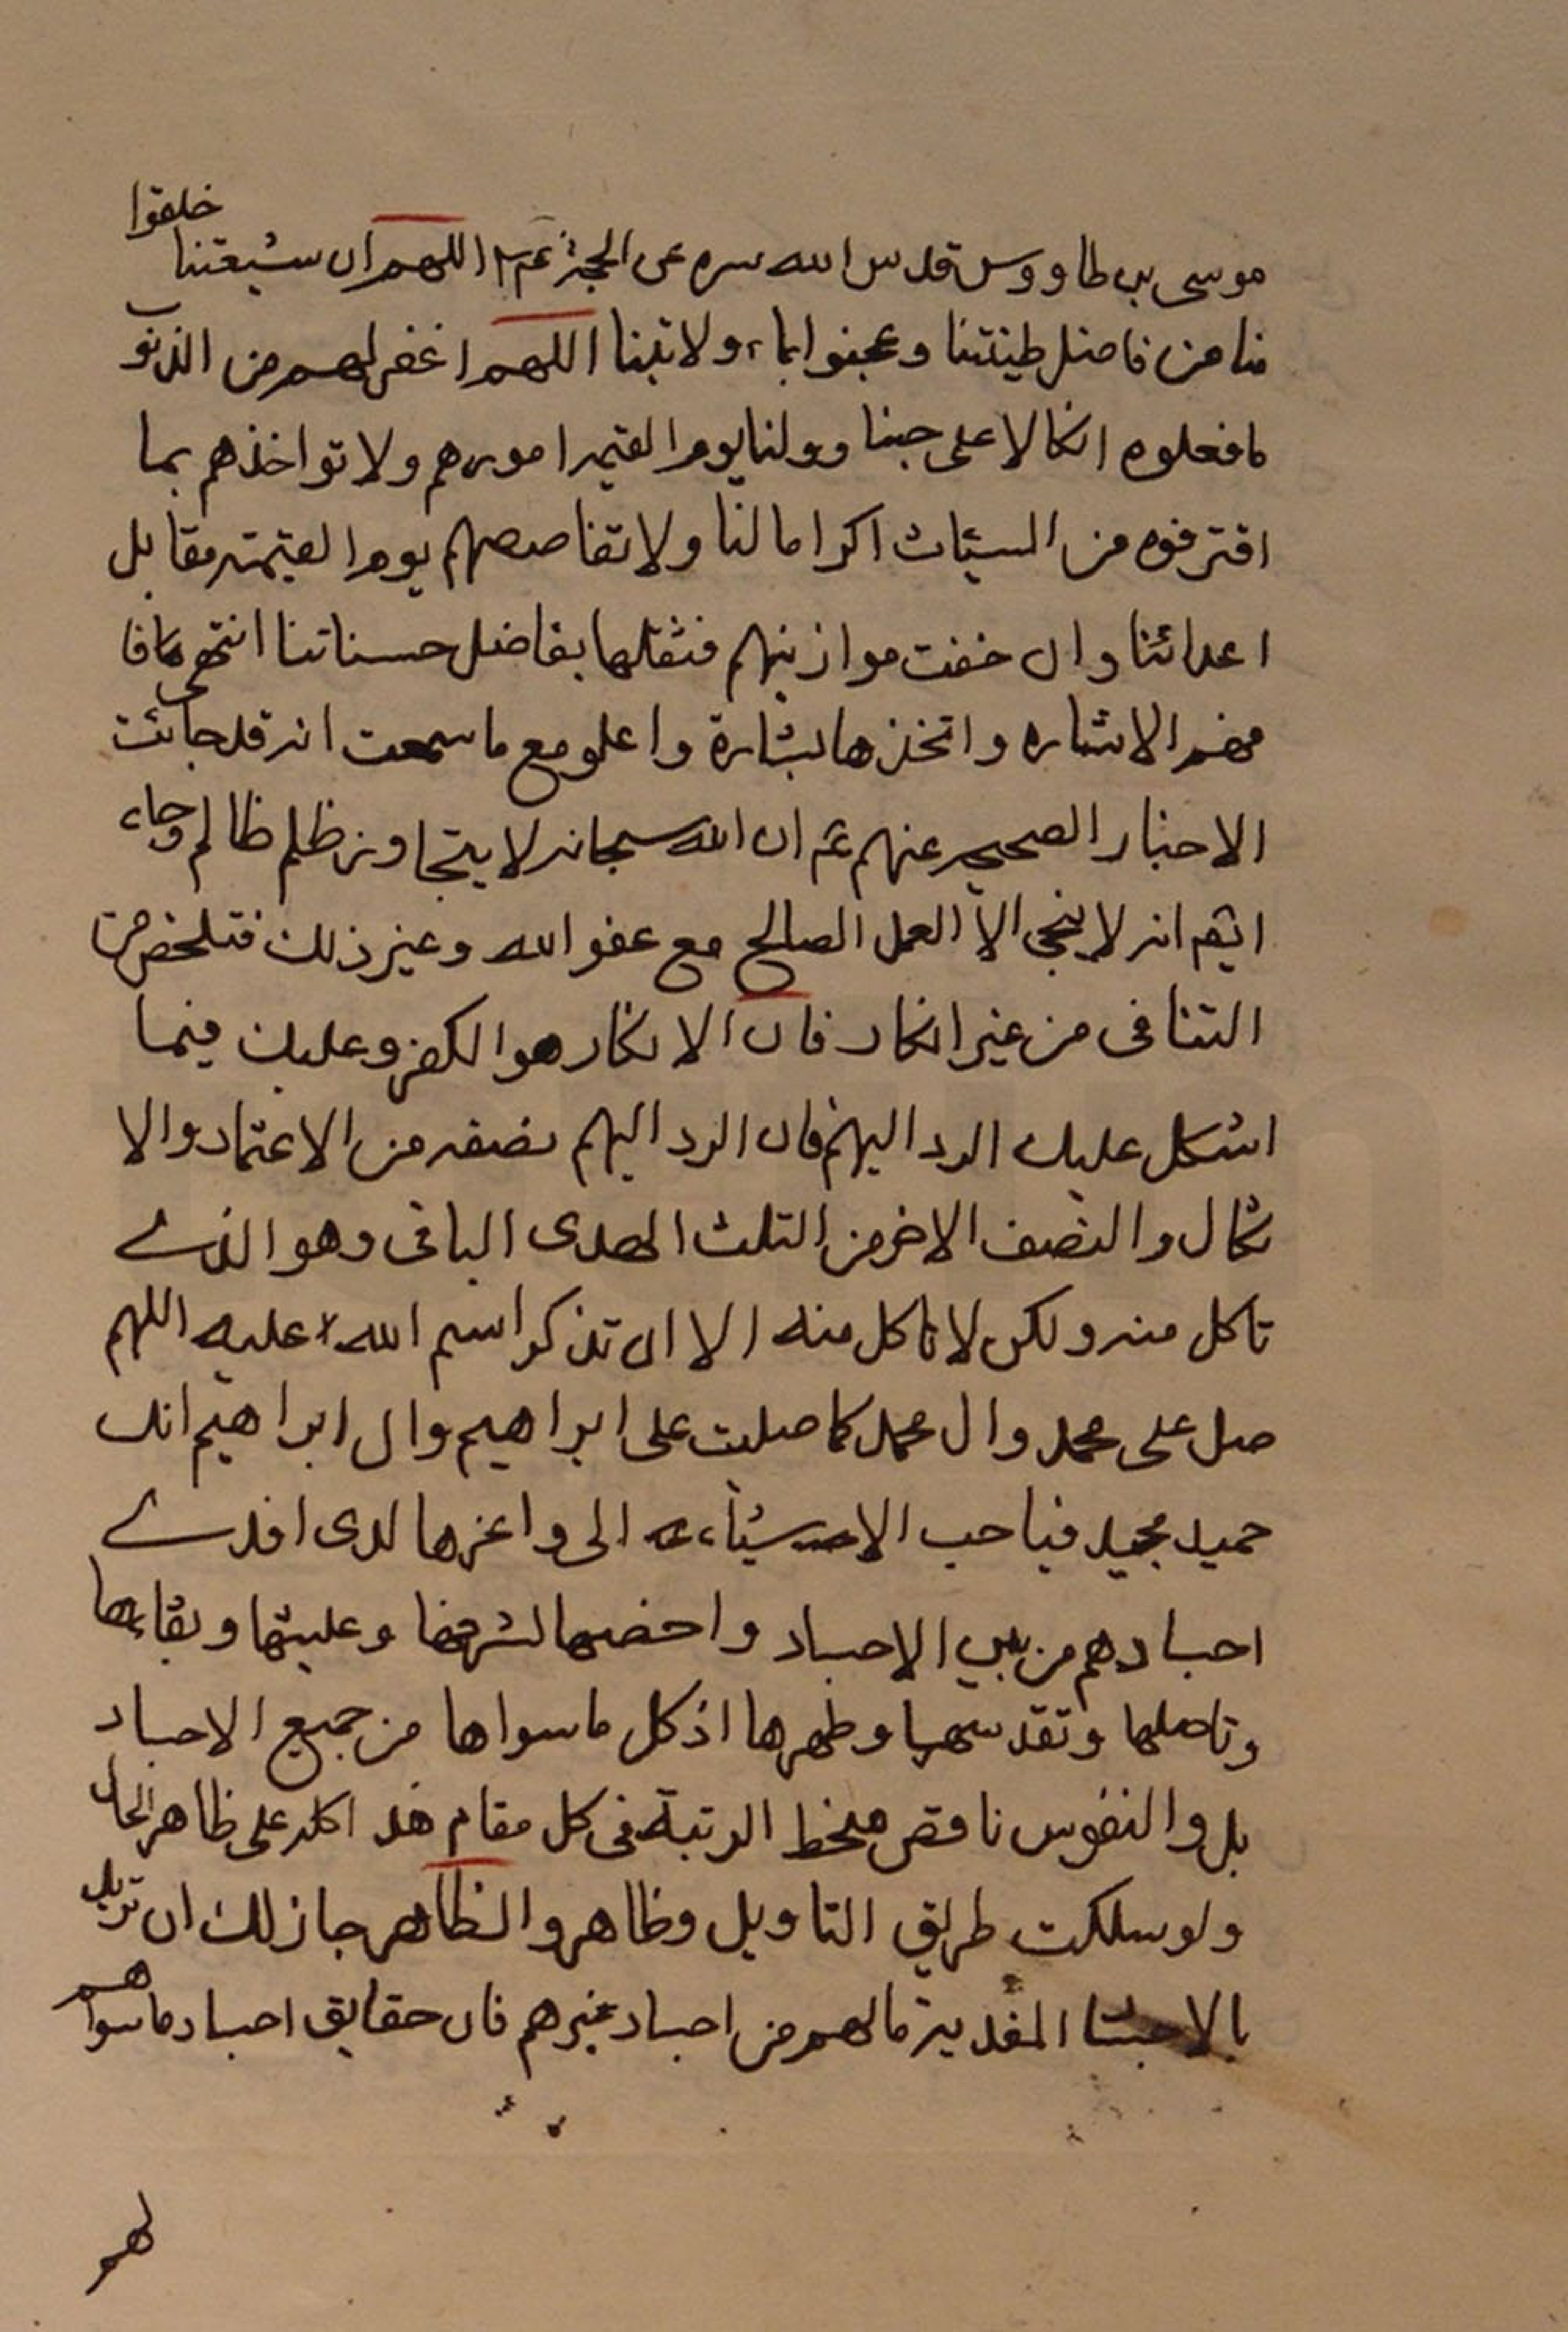 موسی بن طاووس قدس الله سره عن الحجة عم اللهم ان شیعتنا خلقوا
منا من فاضل طینتنا وعجنوا بماء ولایتنا اللهم اغفر لهم من الذنوب
ما فعلوه اتکالا علی حبنا وولنا یوم القیمه امورهم ولا تواخذهم بما
اقترفوه من السیئات اکراما لنا ولا تقاصصهم یوم القیمته مقابل
اعدائنا وان خفت موازینهم فثقلها بفاضل حسناتنا انتهی فا
فهم الاشاره واتخذها بشارة واعلم مع ما سمعت انه قد جائت
الاخبار الصحیحه عنهم عم ان الله سبحانه لا یتجاوز ظلم ظالم وجاء
ایضم انه لا ینجی الا العمل الصالح مع عفو الله وغیر ذلک فتلخص من
التنافی من غیر انکار فان الانکار هو الکفر وعلیک فیما
اشکل علیک الرد الیهم فان الرد الیهم نصفه من الاعتماد والا
تکال والنصف الاخر من الثلث الهدی الباقی وهو الذی
تاکل منه ولکن لا تاکل منه الا ان تذکر اسم الله علیه اللهم
صل علی محمد وال محمد کما صلیت علی ابراهیم وال ابراهیم انک
حمید مجید فیا حب الاشیاء الی واعزها لدی افدی
اجسادهم من بین الاجساد واخصها لشرفها وعلیتها وبقاءها
وتاصلها وتقدسها وطهرها اذ کل ما سواها من جمیع الاجساد
بل والنفوس ناقص منحط الرتبة فی کل مقام هذا کله علی ظاهر الحال
ولو سلکت طریق التاویل وظاهر والظاهر جاز لک ان ترید
بالاجساد المفدیة ما لهم من اجساد غیرهم فان حقایق اجساد ما سواهم
لهم